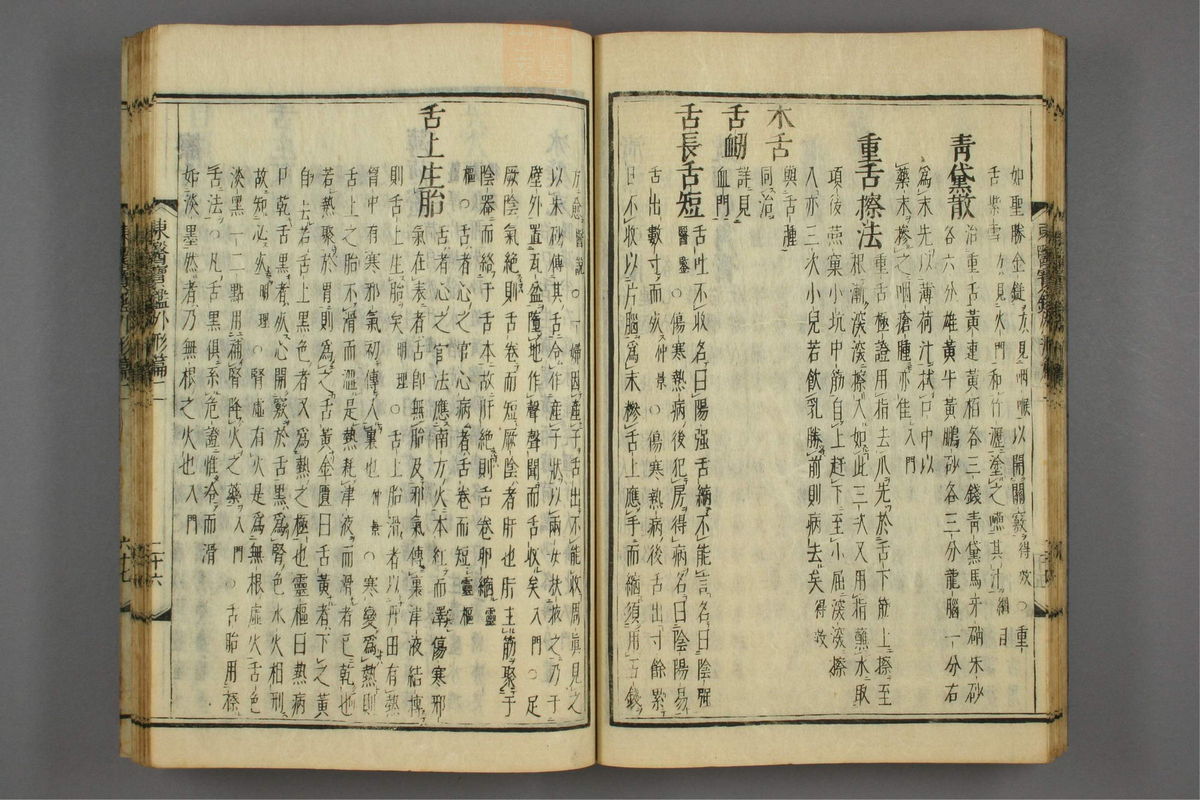 如聖勝金錠方見咽喉以開關竅得效○重
舌紫雪方見火門和竹瀝塗之嚥其汁綱目
靑黛散
治重舌黃連黃栢各三錢靑黛馬牙硝朱砂
各六分雄黃牛黃鵬砂各三分龍腦一分右
爲末先以薄荷汁拭口中以
藥末摻之咽瘡腫亦佳入門
重舌擦法
重舌極證用指去爪先於舌下筋上擦至
根漸深深擦入如此三次又用指蘸水取
項後小坑中筋自上赶下至小屈深深擦
入亦三次小兒若飮乳勝前則病去矣得效
木舌
與舌腫同治
舌衄
詳見血門
舌長舌短
舌吐不收名曰陽强舌縮不能言名曰陰强
醫鑒○傷寒熱病後犯房得病名曰陰陽易
舌出數寸而死仲景○傷寒熱病後舌出寸餘累
日不收以片腦爲末摻舌上應手而縮須用五錢
方愈醫說○一婦因產子舌出不能收周眞見之
以朱砂傅其舌令作産子狀以兩女扶掖之乃于
壁外置瓦盆墮地作聲聲聞而舌收矣入門○足
厥陰氣絶則舌卷而短厥陰者肝也肝主筋聚于
陰器而絡于舌本故肝絶則舌卷卵縮靈
樞○舌者心之官心病者舌卷而短靈樞
舌上生胎
舌者心之官法應南方火本紅而澤傷寒邪
氣在表者舌卽無胎及邪氣傳裏津液結搏
則舌上生胎矣明理○舌上胎滑者以丹田有熱
胷中有寒邪氣初傳入裏也仲景○寒變爲熱則
舌上之胎不滑而澁是熱耗津液而滑者已乾也
若熱聚於胃則爲之舌黃金匱曰舌黃者下之黃
自去若舌上黑色者又爲熱之極也靈樞曰熱病
口乾舌黑者死心開竅於舌黑爲腎色水火相刑
故知必死明理○腎虛有火是爲無根虛火舌色
淡黑一二點用補腎降火之藥入門○舌胎用搽
舌法○凡舌黑俱系危證惟冷而滑
如淡墨然者乃無根之火也入門
東醫寶鑑外形篇二
二十六
東醫寶鑑外形篇二